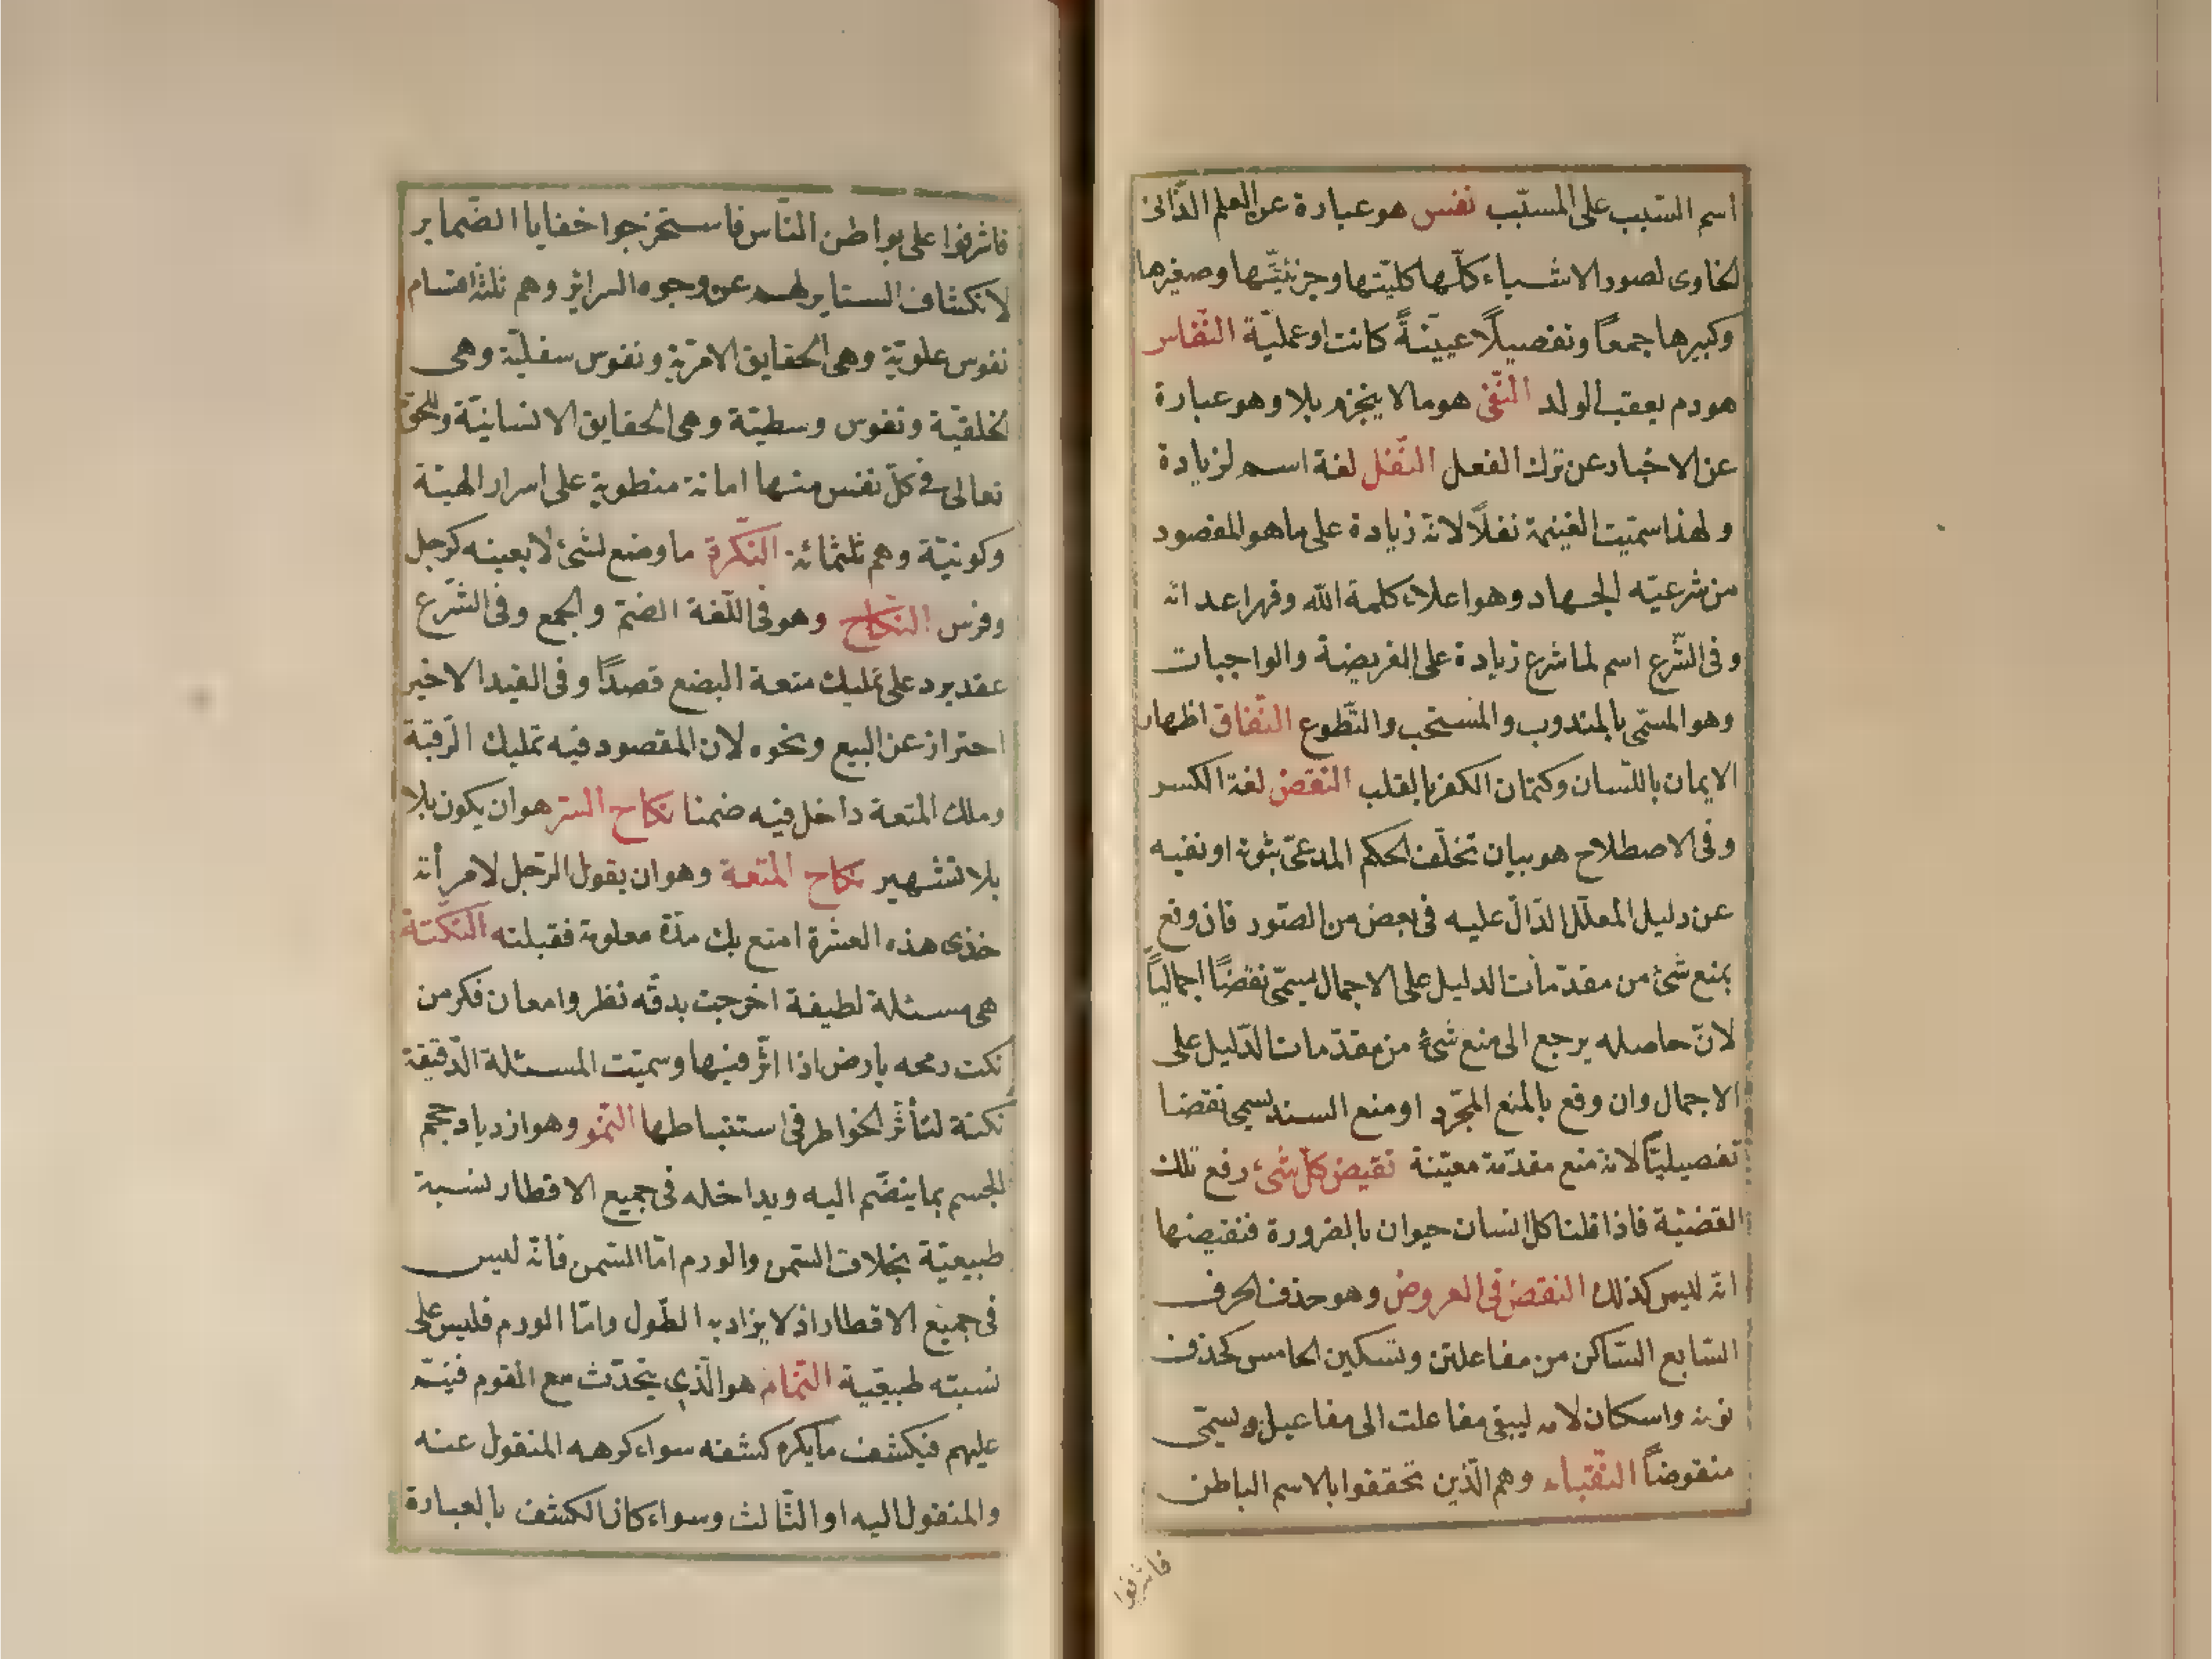 اسم السّبب على المسبّب نفس هو عبارة عن العلم الذّاتى
الحاوى لصور الاشياء كلّها كليّتها وجزئيّتها وصغيرها
وكبيرها جمعاً وتفصيلًا عينيّةً كانت او عمليّة النّفاس
هو دم يعقب الولد النّفى هو مالا ينجزم بلا وهو عبارة
عن الاخبار عن ترك الفعل النّفل لغة اسم لزيادة
ولهذا سمّيت الغنيمة نفلًا لانه زيادة على ما هو المقصود
من شرعيّه الجهاد وهو اعلاء كلمة الله وقهر اعدائه
وفى الشّرع اسم لما شرع زيادة على الفريضة والواجبات
وهو المسمّى بالمندوب والمستحب والتّطوع النّفاق اظهار
الايمان باللّسان وكتمان الكفر بالقلب النّقض لغة الكسر
وفى الاصطلاح هو بيان تخلّف الحكم المدعىّ ثبوته او نفيه
عن دليل المعلّل الدّالّ عليه فى بعض من الصّور فان وقع
بمنع شئ من مقدّمات الدليل على الاجمال يسمّى نقضًا اجماليّاً
لانّ حاصله يرجع الى منع شئ من مقدّمات الدّليل على
الاجمال وان وقع بالمنع المجّرد او منع السند يسمى نقضا
تفصيليّاً لانه منع مقدّمة معيّنة نقيض كلّ شئ رفع تلك
القضيّة فاذا قلنا كل انسان حيوان بالضرورة فنقيضها
انّه ليس كذلك النقض فى العروض وهو حذف الحرف
السّابع السّاكن من مفاعلتن وتسكين الخامس كحذف
نونه واسكان لامه ليبقى مفاعلت الى مفاعيل ويسمّى
منقوضاً النّقباء وهم الّذين تحققوا بالاسم الباطن
فاشرفوا
فاشرفوا على بواطن النّاس فاستخرجوا خفايا الضّماير
لانكشاف الستاير لهم عن وجوه السرائر وهم ثلثة اقسام
نفوس علويّة وهى الحقايق الامريّة ونفوس سفليّة وهى
الخلقيّة ونفوس وسطيّة وهى الحقايق الانسانيّة وللحق
تعالى فى كلّ نفس منها امانة منطوية على اسرار الهيّة
وكونيّة وهم ثلثمائة النّكرة ما وضع لشئ لا بعينه كرجل
وفرس النّكاح وهو فى اللّغة الضمّ والجمع وفى الشّرع
عقد يرد على تمليك متعة البضع قصدًا وفى القيد الاخير
احتراز عن البيع ونحوه لان المقصود فيه تمليك الرّقبة
وملك المتعة داخل فيه ضمنا نكاح السّر هو ان يكون بلا
بلا تشهير نكاح المتعة وهو ان يقول الرّجل لامرأته
خذى هذه العشرة امتع بك مدّة معلومة فقبلته النّكتة
هى مسئلة لطيفة اخرجت بدقّه نظر وامعان فكر من
نكت رمحه بارض اذا اثّر فيها وسمّيت المسئلة الدّقيقة
نكتة لتأثّر الخواطر فى استنباطها النّمو وهو ازدياد حجم
الجسم بما ينضّم اليه ويداخله فى جميع الاقطار نسبة
طبيعيّة بخلاف السّمن والورم امّا السّمن فانّه ليس
فى جميع الاقطار اذ لا يزاد به الطّول وامّا الورم فليس على
نسبته طبيقية النّمام هو الّذى يتحدّث مع القوم فينمّ
عليهم فيكشف ما يكره كشفه سواء كرهه المنقول عنه
والمنقول اليه او الثّالث وسواء كان الكشف بالعبارة